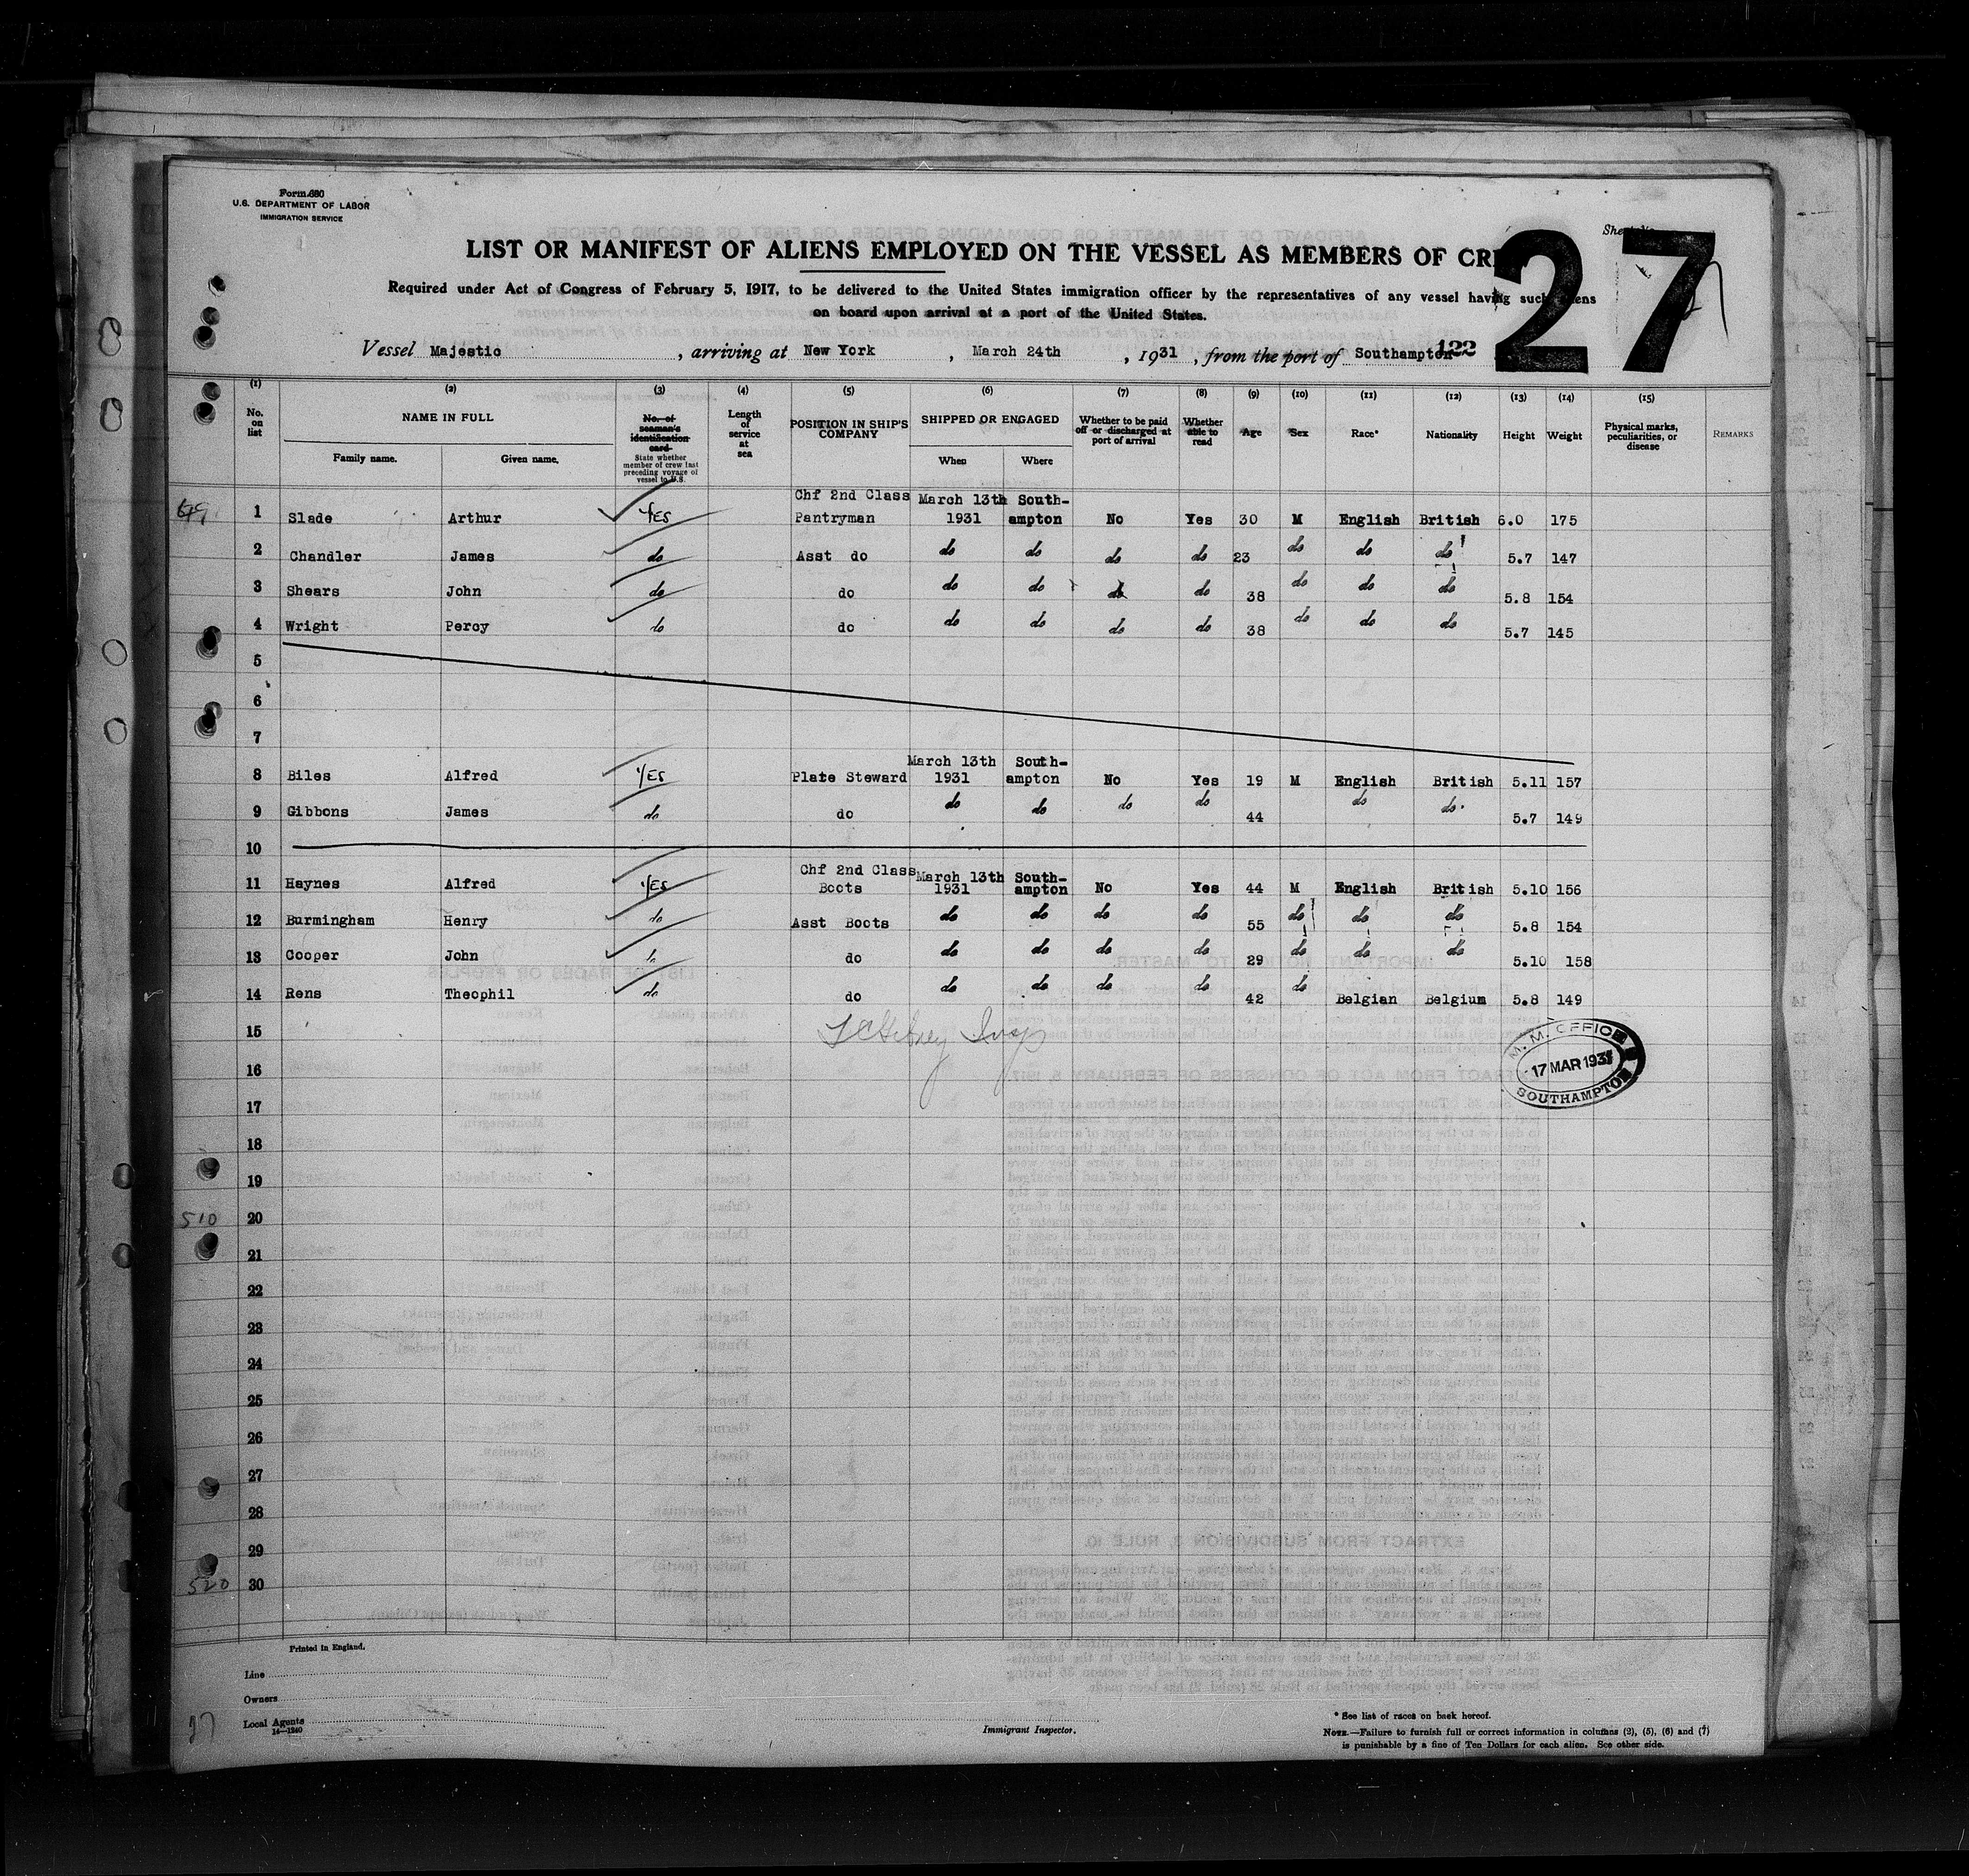 Form 680
U.S. DEPARTMENT OF LABOR
IMMIGRATION SERVICE
Sheet No.
27
LIST OR MANIFEST OF ALIENS EMPLOYED ON THE VESSEL AS MEMBERS OF CRE
Required under Act of Congress of February 5, 1917, to be delivered to the United States immigration officer by the representatives of any vessel having such aliens
on board upon arrival at a port of the United States.
Vessel Majestic , arriving at New York , March 24th , 1931 , from the port of Southampton 122
(1) (2) (3) (4) (5) (6) (7) (8) (9) (10) (11) (12) (13) (14) (15)
No. on list NAME IN FULL Family name. Given name. No. of seaman's identification card. State whether member of crew last preceding voyage of vessel to U.S. Length of service at sea POSITION IN SHIP'S COMPANY SHIPPED OR ENGAGED When Where Whether to be paid off or discharged at port of arrival Whether able to read Age Sex Race* Nationality Height Weight Physical marks, peculiarities, or disease REMARKS
1 Slade Arthur Yes Chf 2nd Class Pantryman March 13th 1931 South-ampton No Yes 30 M English British 6.0 175
2 Chandler James do Asst do do do do do 23 do do do 5.7 147
3 Shears John do do do do do do 38 do do do 5.8 154
4 Wright Percy do do do do do do 38 do do do 5.7 145
5
6
7
8 Biles Alfred Yes Plate Steward March 13th 1931 South-ampton No Yes 19 M English British 5.11 157
9 Gibbons James do do do do do do 44 do do 5.7 149
10
11 Haynes Alfred Yes Chf 2nd Class Boots March 13th 1931 South-ampton No Yes 44 M English British 5.10 156
12 Burmingham Henry do Asst Boots do do do do 55 do do do 5.8 154
13 Cooper John do do do do do do 29 do do do 5.10 158
14 Rens Theophil do do do do do do 42 do Belgian Belgium 5.8 149
15
M. M. OFFICE
17 MAR 1931
SOUTHAMPTON
16
17
18
19
510 20
21
22
23
24
25
26
27
28
29
520 30
Printed in England.
Line
Owners
Local Agents
14—1240
27
Immigrant Inspector.
* See list of races on back hereof.
NOTE.—Failure to furnish full or correct information in columns (2), (5), (6) and (7)
is punishable by a fine of Ten Dollars for each alien. See other side.